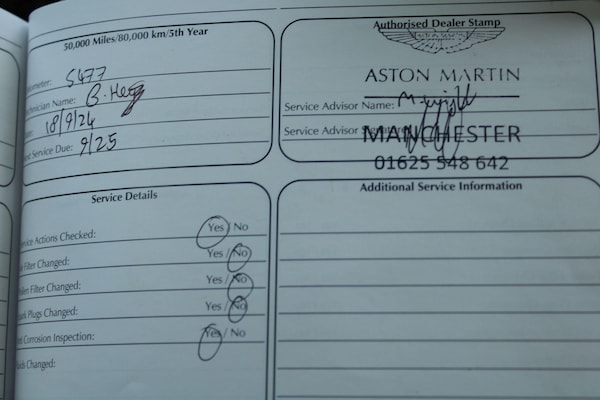 50,000 Miles/80,000 km/5th Year
ometer: 5477
chnician Name: B.
18/9/24
Service Due: 9/25
Authorised Dealer Stamp
ASTON MARTIN
ASTON MARTIN
Service Advisor Name:
Service Advisor
MANCHESTER
01625 548 642
Service Details
rvice Actions Checked: Yes / No
Filter Changed: Yes / No
llen Filter Changed: Yes / No
ark Plugs Changed: Yes / No
Corrosion Inspection: Yes / No
uids Changed:
Additional Service Information